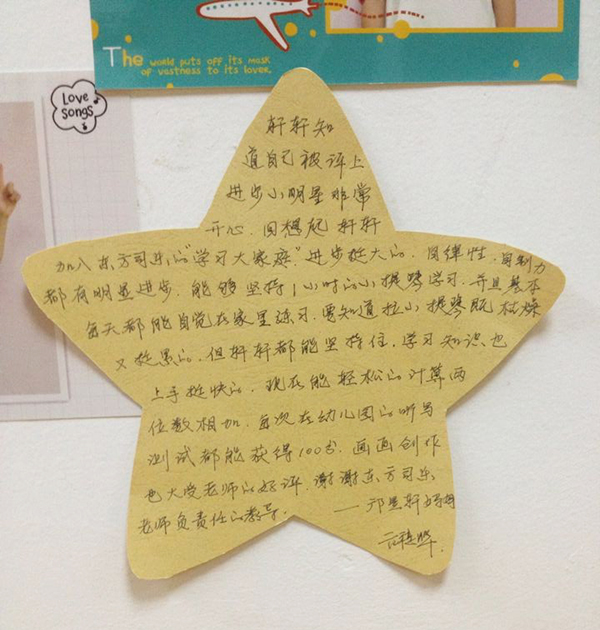 The world puts off its mask
of vastness to its lover.
Love
songs
轩轩知
道自己被评上
进步小明星非常
开心.回想起轩轩
加入东方司乐的"学习大家庭"进步挺大的.
都有明显进步.能够坚持1小时的小提琴学习.并且基本
每天都能自觉在家里练习.要知道拉小提琴既枯燥
又挺累的.但轩轩都能坚持住.学习知识也
上手挺快的.现在能轻松的计算两
位数相加.每次在幼儿园的听写
测试都能获得100分.画画创作
也大受老师的好评.谢谢东方司乐
老师负责任的教导.